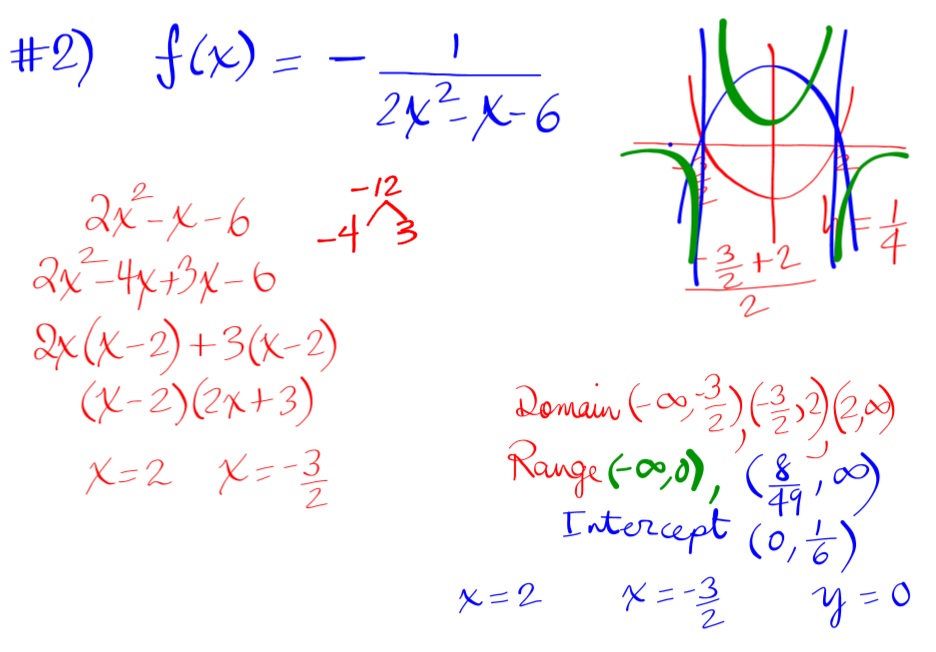 #2) f(x) = - 1/(2x² - x - 6)
2x² - x - 6
-12
-4 3
2x² - 4x + 3x - 6
2x(x-2) + 3(x-2)
(x-2)(2x+3)
x = 2 x = -3/2
2
(-3/2 + 2)/2 = 1/4
Domain (-∞, -3/2), (-3/2, 2), (2, ∞)
Range (-∞, 0), (8/49, ∞)
Intercept (0, 1/6)
x = 2 x = -3/2 y = 0